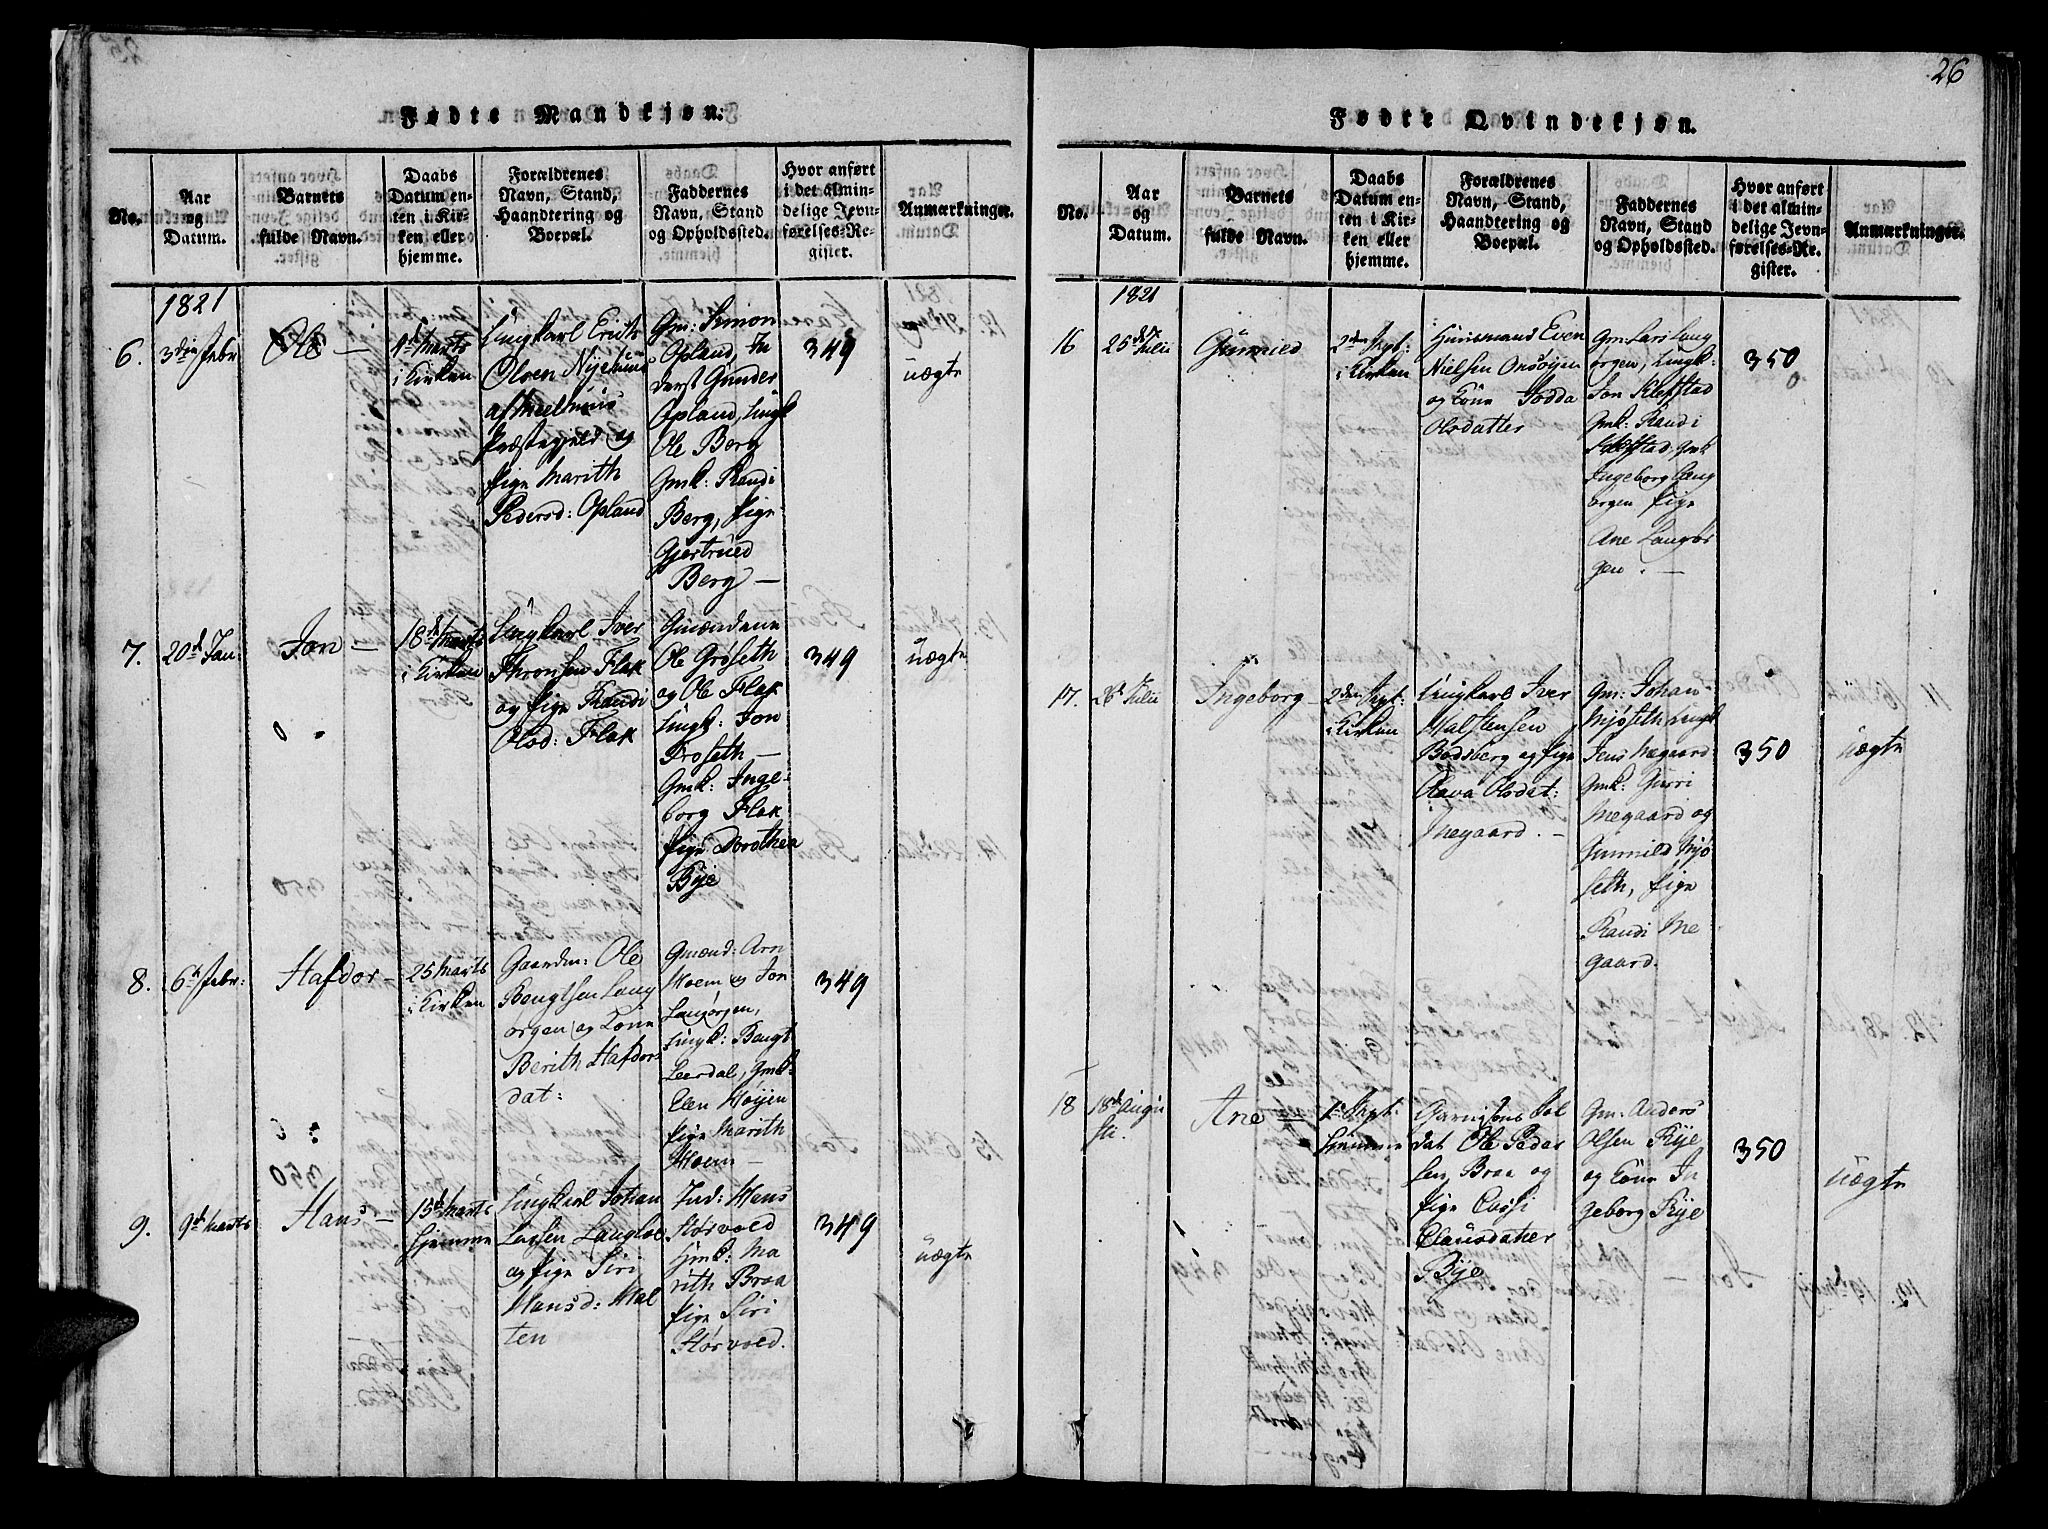 Fødte Mandkjøn.
No.
Aar
og
Datum.
Barnets
fulde Navn.
Daabs
Datum en-
ten i Kir-
ken eller
hjemme.
Forældrenes
Navn, Stand,
Haandtering og
Boepæl.
Faddernes
Navn, Stand
og Opholdssted.
Hvor anført
i det almin-
delige Jevn-
førelses-Re-
gister.
Anmærkninger.
1821
6.
3die Febr
Ole —
4d Marts
i Kirken
Ungkarl Erich
Olsen Nyehuus
af Meelhuus
Præstegjeld og
Pige Marith
Pedersd: Opland
Gm: Simon
Opland, In
derst Gunder
Opland, Ungk
Ole Berg
Gmk: Randi
Berg, Pige
Gjertrued
Berg —
349
uægte
7.
20d Jan:
Jon —
18d Marts
i Kirken
Ungkarl Iver
Thronsen Flak
og Pige Randi
Olsd: Flak
Gmændene
Ole Grøseth
og Ole Flak
Ungk: Jon
Froseth —
Gmk: Inge-
borg Flak
Pige Dorothea
Bye
349
uægte
8.
6d Febr:
Hafdor —
25 Marts
i Kirken
Gaardm: Ole
Bengtsen Lang
ørgen og Kone
Berith Hafdors
dat:
Gmænd: Arn
Hoem og Jon
Langørgen,
Ungk: Bengt
Leerdal, Gmk:
Elen Høyen
Pige Marith
Hoem —
349
9.
9d Marts
Hans —
15d Marts
hjemme
Ungkarl Johan
Larsen Langloe
og Pige Siri
Hansd: Hal
ten
Ind: Hans
Hørvold
Gmk: Ma
rith Braa
Pige Siri
Hørvold.
349
uægte
26
Fødte Qvindekjøn.
No.
Aar
og
Datum.
Barnets
fulde Navn.
Daabs
Datum en-
ten i Kir-
ken eller
hjemme.
Forældrenes
Navn, Stand,
Haandtering og
Boepæl.
Faddernes
Navn, Stand
og Opholdssted.
Hvor anført
i det almin-
delige Jevn-
førelses-Re-
gister.
Anmærkninger.
1821
16
25de Julii
Gunnild
2den Sept:
i Kirken
Huusmand Even
Nielsen Onsøyen
og Kone Godda
Olsdatter
Gm: Lars Lang
ørgen, Ungk:
Jon Kleffstad
Gmk: Randi
Kleffstad, Gmk
Ingeborg Lang
ørgen Pige
Ane Langør
gen. —
350
17.
2d Julii
Ingeborg —
2den Sept:
i Kirken
Ungkarl Iver
Halstensen
Bodsberg og Pige
Olava Olsdat:
Megaard. —
Gm: Johan
Mjøseth Ungk
Jens Megaard
Gmk: Gurri
Megaard og
Gunnild Mjø
seth, Pige
Randi Me
gaard.
350
uægte
18
18d Augu
sti.
Ane —
1d Sept:
hjemme
Garnisons Sol
dat Ole Peder
sen, Braa og
Pige Cassi
Clausdatter
Bye
Gm: Anders
Olsen Rye
og Kone In
geborg Rye
350
uægte